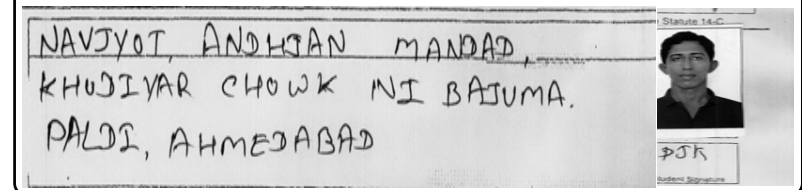 NAVJYOT, ANDHJAN MANDAD,
KHODIYAR CHOWK NI BAJUMA.
PALDI, AHMEDABAD
Statute 14-C
PJK
Student Signature